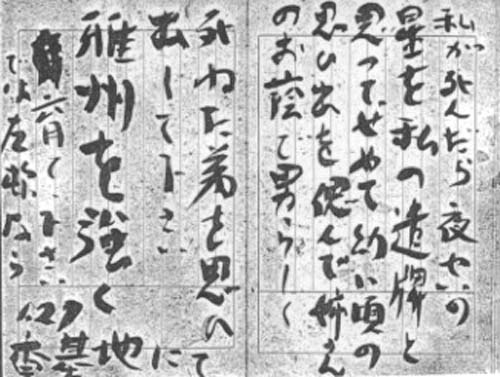 私が死んだら夜の
星を私の遺牌と
思ってせめて幼い頃の
思ひ出を偲んで姉さん
のお蔭で男らしく
死ねた弟を思ひて
出して下さい に
雅州を強く 地
育て下さい 基
では左様なら